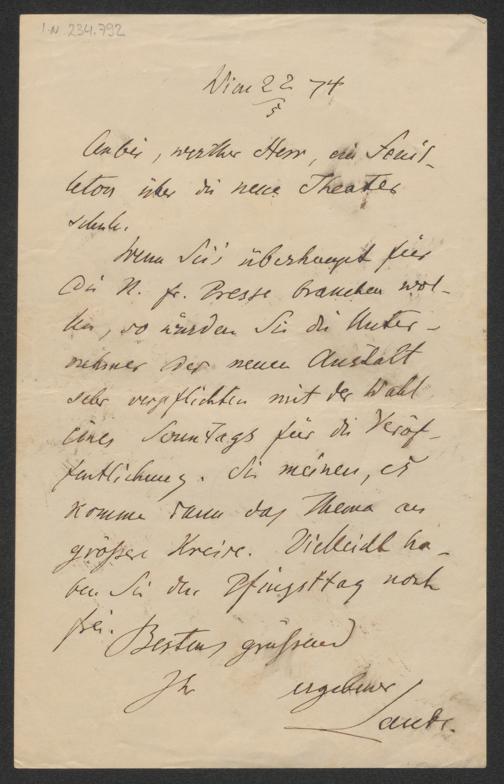 I.N. 234.792
Wien 22/5 74
Anbei, werther Herr, ein Feuil-
leton über die neue Theater
schule.
Wenn Sie's überhaupt für
Die N. fr. Presse brauchen wol-
len, so würden Sie die Unter-
nehmer der neuen Anstalt
sehr verpflichten mit der Wahl
eines Sonntags für die Veröf-
fentlichung. Sie meinen, es
komme dann das Thema an
größere Kreise. Vielleicht ha-
ben Sie den Pfingsttag noch
frei.
Bestens grüßend
Ihr ergebener
Laube.